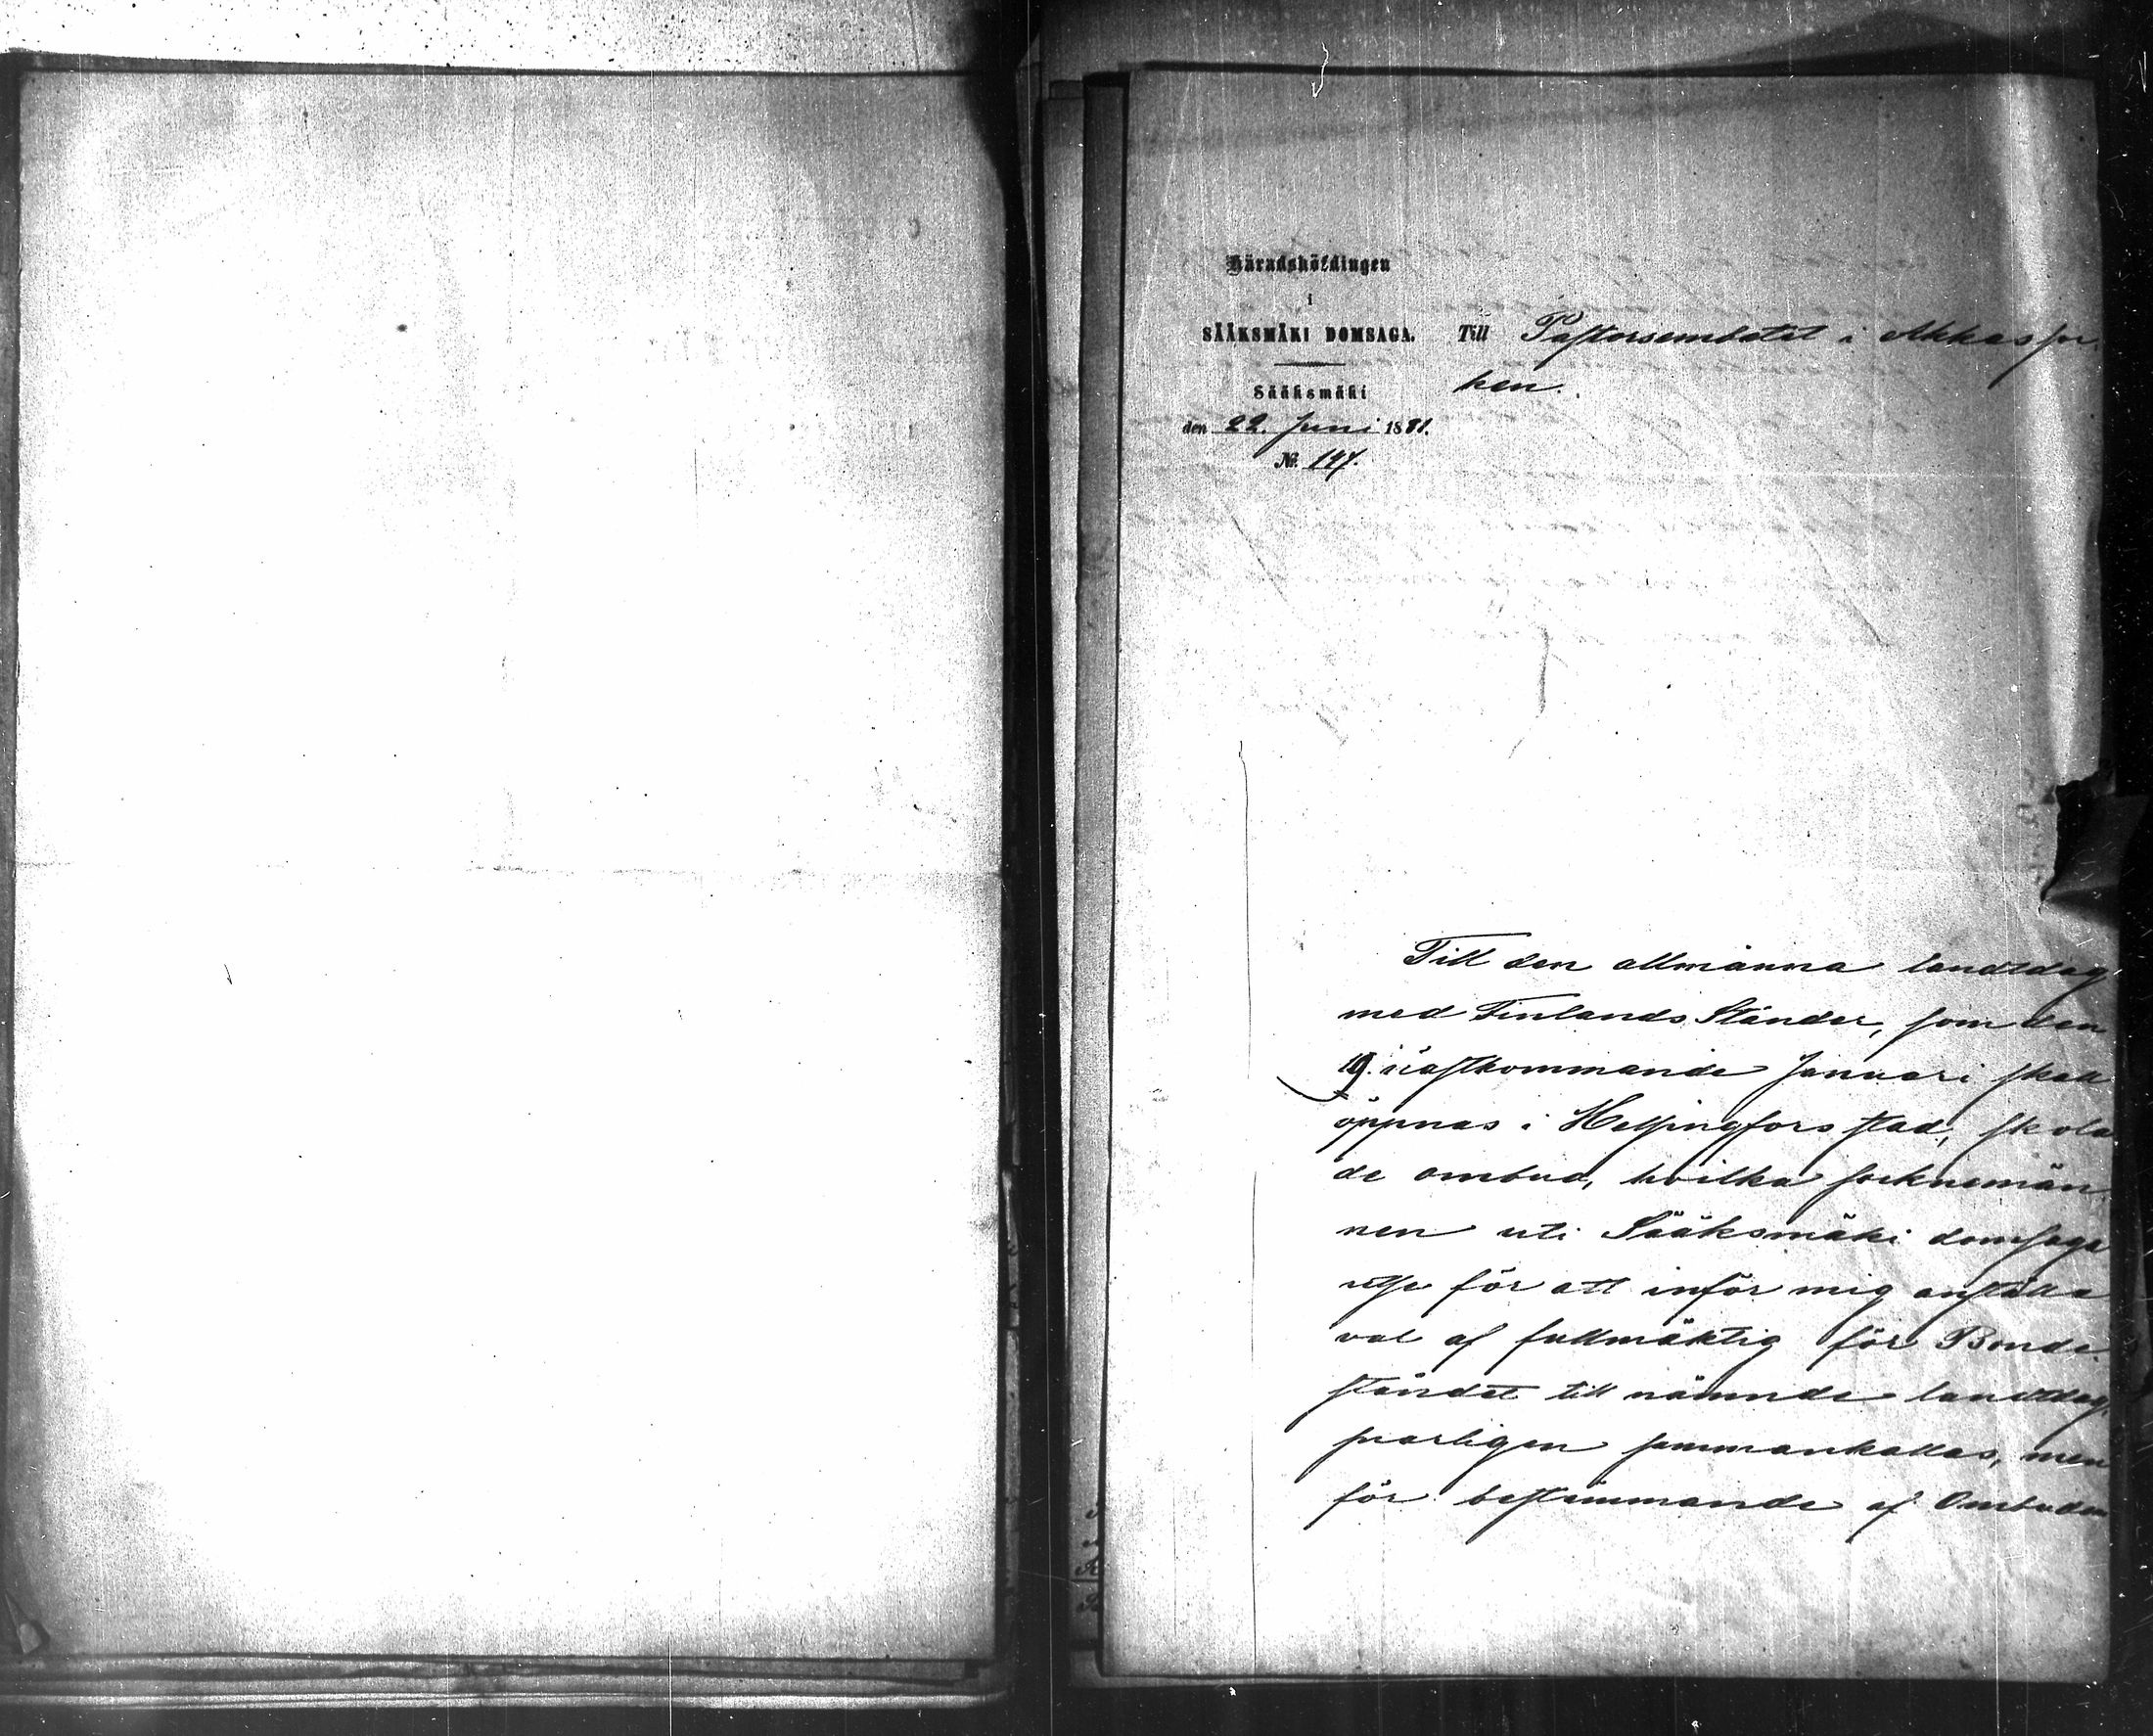 Häradshöfdingen
i
SÄÄKSMÄKI DOMSAGA.
Sääksmäki
den 22. Juni 1881.
No. 147.
Till Pastorsembetet i Akkas soc
ken.
Till den allmänna landtdag
med Finlands Ständer, som den
19. nästkommande Januari skall
öppnas i Helsingfors stad, skola
de ombud, hvilka socknemän
nen uti Sääksmäki domsaga
utse för att inför mig anställa
val af fullmäktig för Bonde
ståndet till nämnde landtdag,
snarligen sammankallas, men
för bestämmande af Ombuden